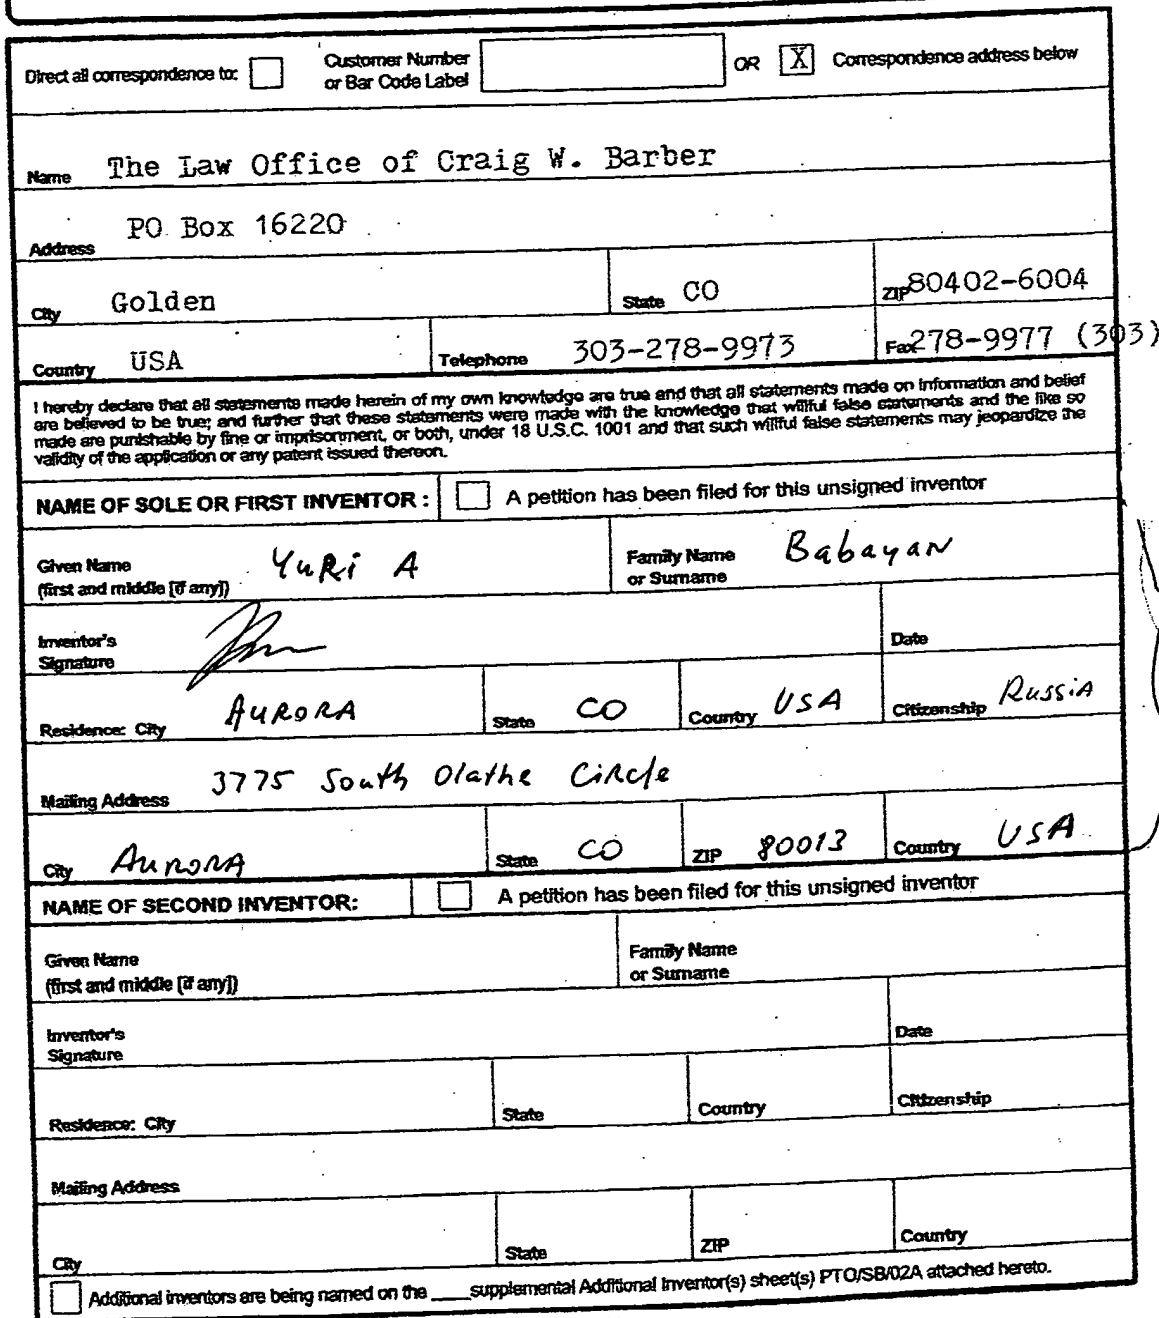 Direct all correspondence to: Customer Number or Bar Code Label OR X Correspondence address below
Name The Law Office of Craig W. Barber
Address PO Box 16220
City Golden State CO ZIP 80402-6004
Country USA Telephone 303-278-9973 Fax 278-9977 (303)
I hereby declare that all statements made herein of my own knowledge are true and that all statements made on information and belief
are believed to be true; and further that these statements were made with the knowledge that willful false statements and the like so
made are punishable by fine or imprisonment, or both, under 18 U.S.C. 1001 and that such willful false statements may jeopardize the
validity of the application or any patent issued thereon.
NAME OF SOLE OR FIRST INVENTOR : A petition has been filed for this unsigned inventor
Given Name (first and middle [if any]) Yuri A Family Name or Surname Babayan
Inventor's Signature Date
Residence: City Aurora State CO Country USA Citizenship Russia
Mailing Address 3775 South Olathe Circle
City Aurora State CO ZIP 80013 Country USA
NAME OF SECOND INVENTOR: A petition has been filed for this unsigned inventor
Given Name (first and middle [if any]) Family Name or Surname
Inventor's Signature Date
Residence: City State Country Citizenship
Mailing Address
City State ZIP Country
Additional inventors are being named on the ____supplemental Additional Inventor(s) sheet(s) PTO/SB/02A attached hereto.